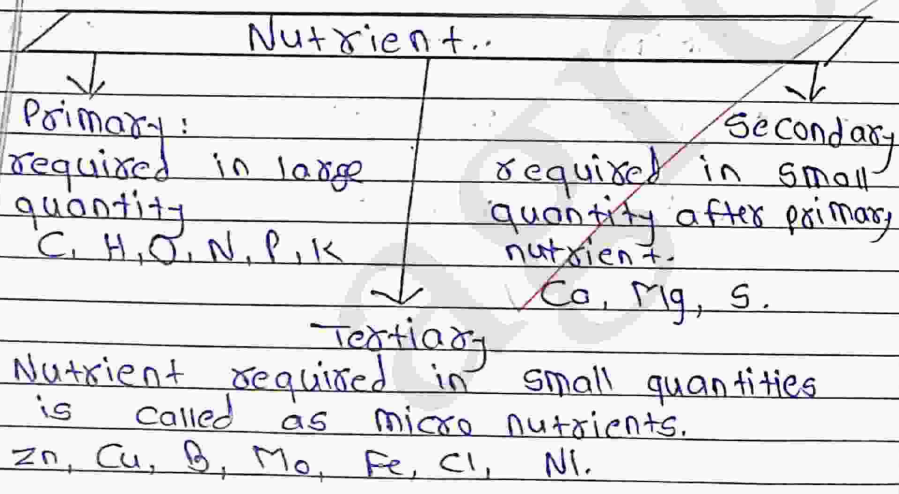 Nutrient..
Primary:
required in large
quantity
C, H, O, N, P, K
Secondary
required in small
quantity after primary
nutrient.
Ca, Mg, S.
Tertiary
Nutrient required in small quantities
is called as micro nutrients.
Zn, Cu, B, Mo, Fe, Cl, NI.